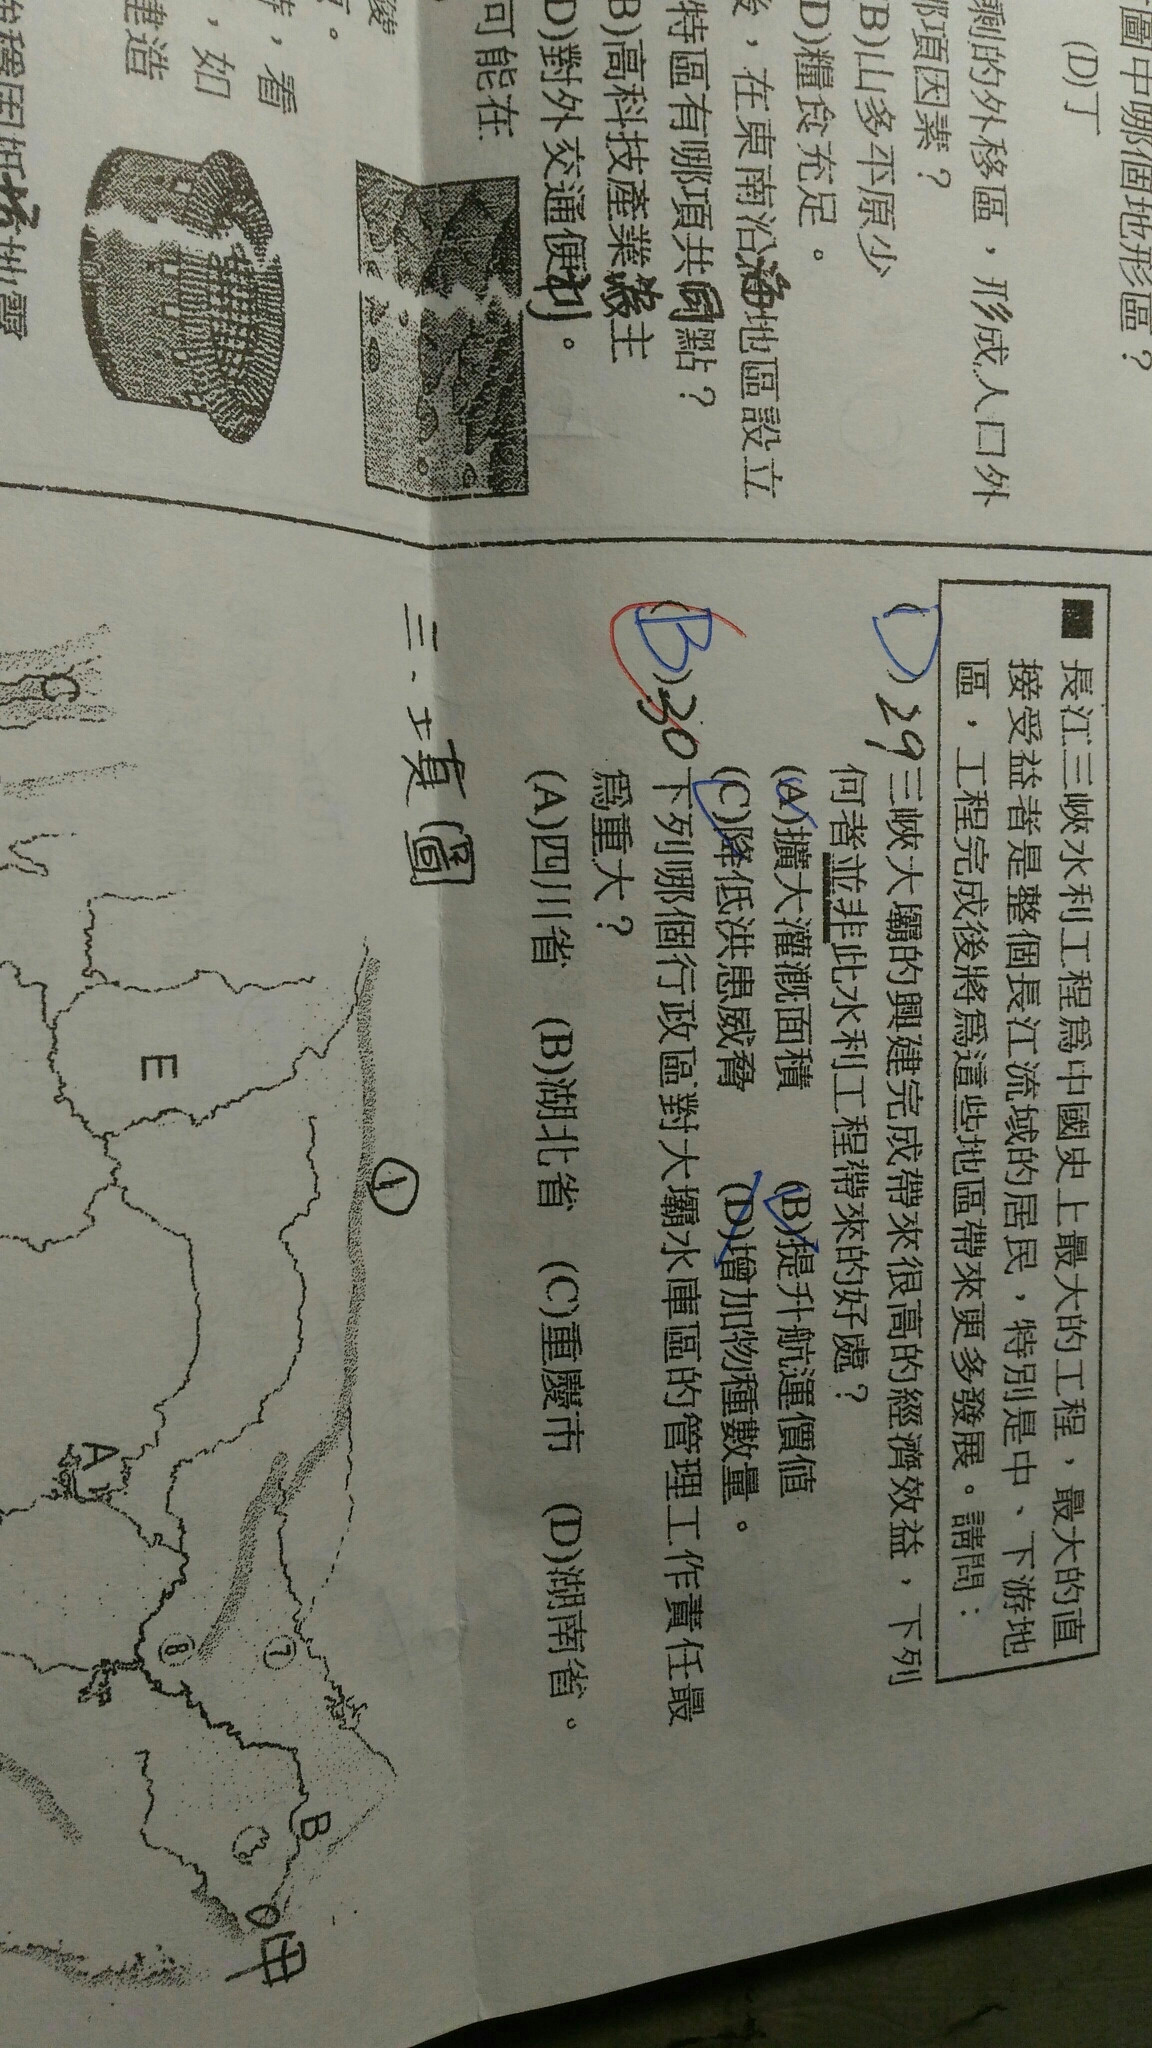 圖中哪個地形區？
(D)丁
剩的外移區，形成人口外
那項因素？
(B)山多平原少
(D)糧食充足。
後，在東南沿海地區設立
特區有哪項共同點？
(B)高科技產業為主
(D)對外交通便利。
可能在
，看
，如
建造
■ 長江三峽水利工程為中國史上最大的工程，最大的直
接受益者是整個長江流域的居民，特別是中、下游地
區，工程完成後將為這些地區帶來更多發展。請問：
(D) 29 三峽大壩的興建完成帶來很高的經濟效益，下列
何者並非此水利工程帶來的好處？
(A)擴大灌溉面積 (B)提升航運價值
(C)降低洪患威脅 (D)增加物種數量。
(B) 30 下列哪個行政區對大壩水庫區的管理工作責任最
為重大？
(A)四川省 (B)湖北省 (C)重慶市 (D)湖南省。
三.填圖
1
E
C
A
8
7
B
甲